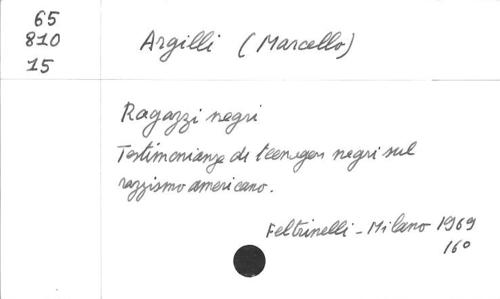 65
810
15
Argilli (Marcello)
Ragazzi negri
Testimonianze di teenagers negri sul
razzismo americano.
Feltrinelli - Milano 1969
16°